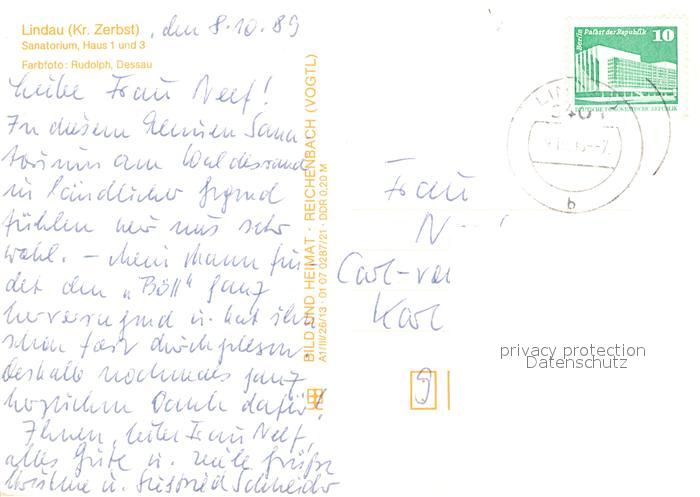 Lindau (Kr. Zerbst), den 8.10.89
Sanatorium, Haus 1 und 3
Farbfoto: Rudolph, Dessau
Liebe Frau Neef!
In diesem kleinen Sana
torium am Waldesrand
in ländlicher Gegend
fühlen wir uns sehr
wohl. – Mein Mann fin
det den „Böll" ganz
hervorragend u. hat ihn
schon fast durchgelesen.
Deshalb nochmals ganz
herzlichen Dank dafür!
Ihnen, liebe Frau Neef,
alles Gute u. viele Grüße
u. Siegfried Schneider
BILD UND HEIMAT · REICHENBACH (VOGTL)
A1/III/26/13 · 01 07 0287/21 · DDR 0,20 M
Berlin Palast der Republik 10
DEUTSCHE DEMOKRATISCHE REPUBLIK
b
Frau
N
Carl-von
Karl
9
privacy protection
Datenschutz